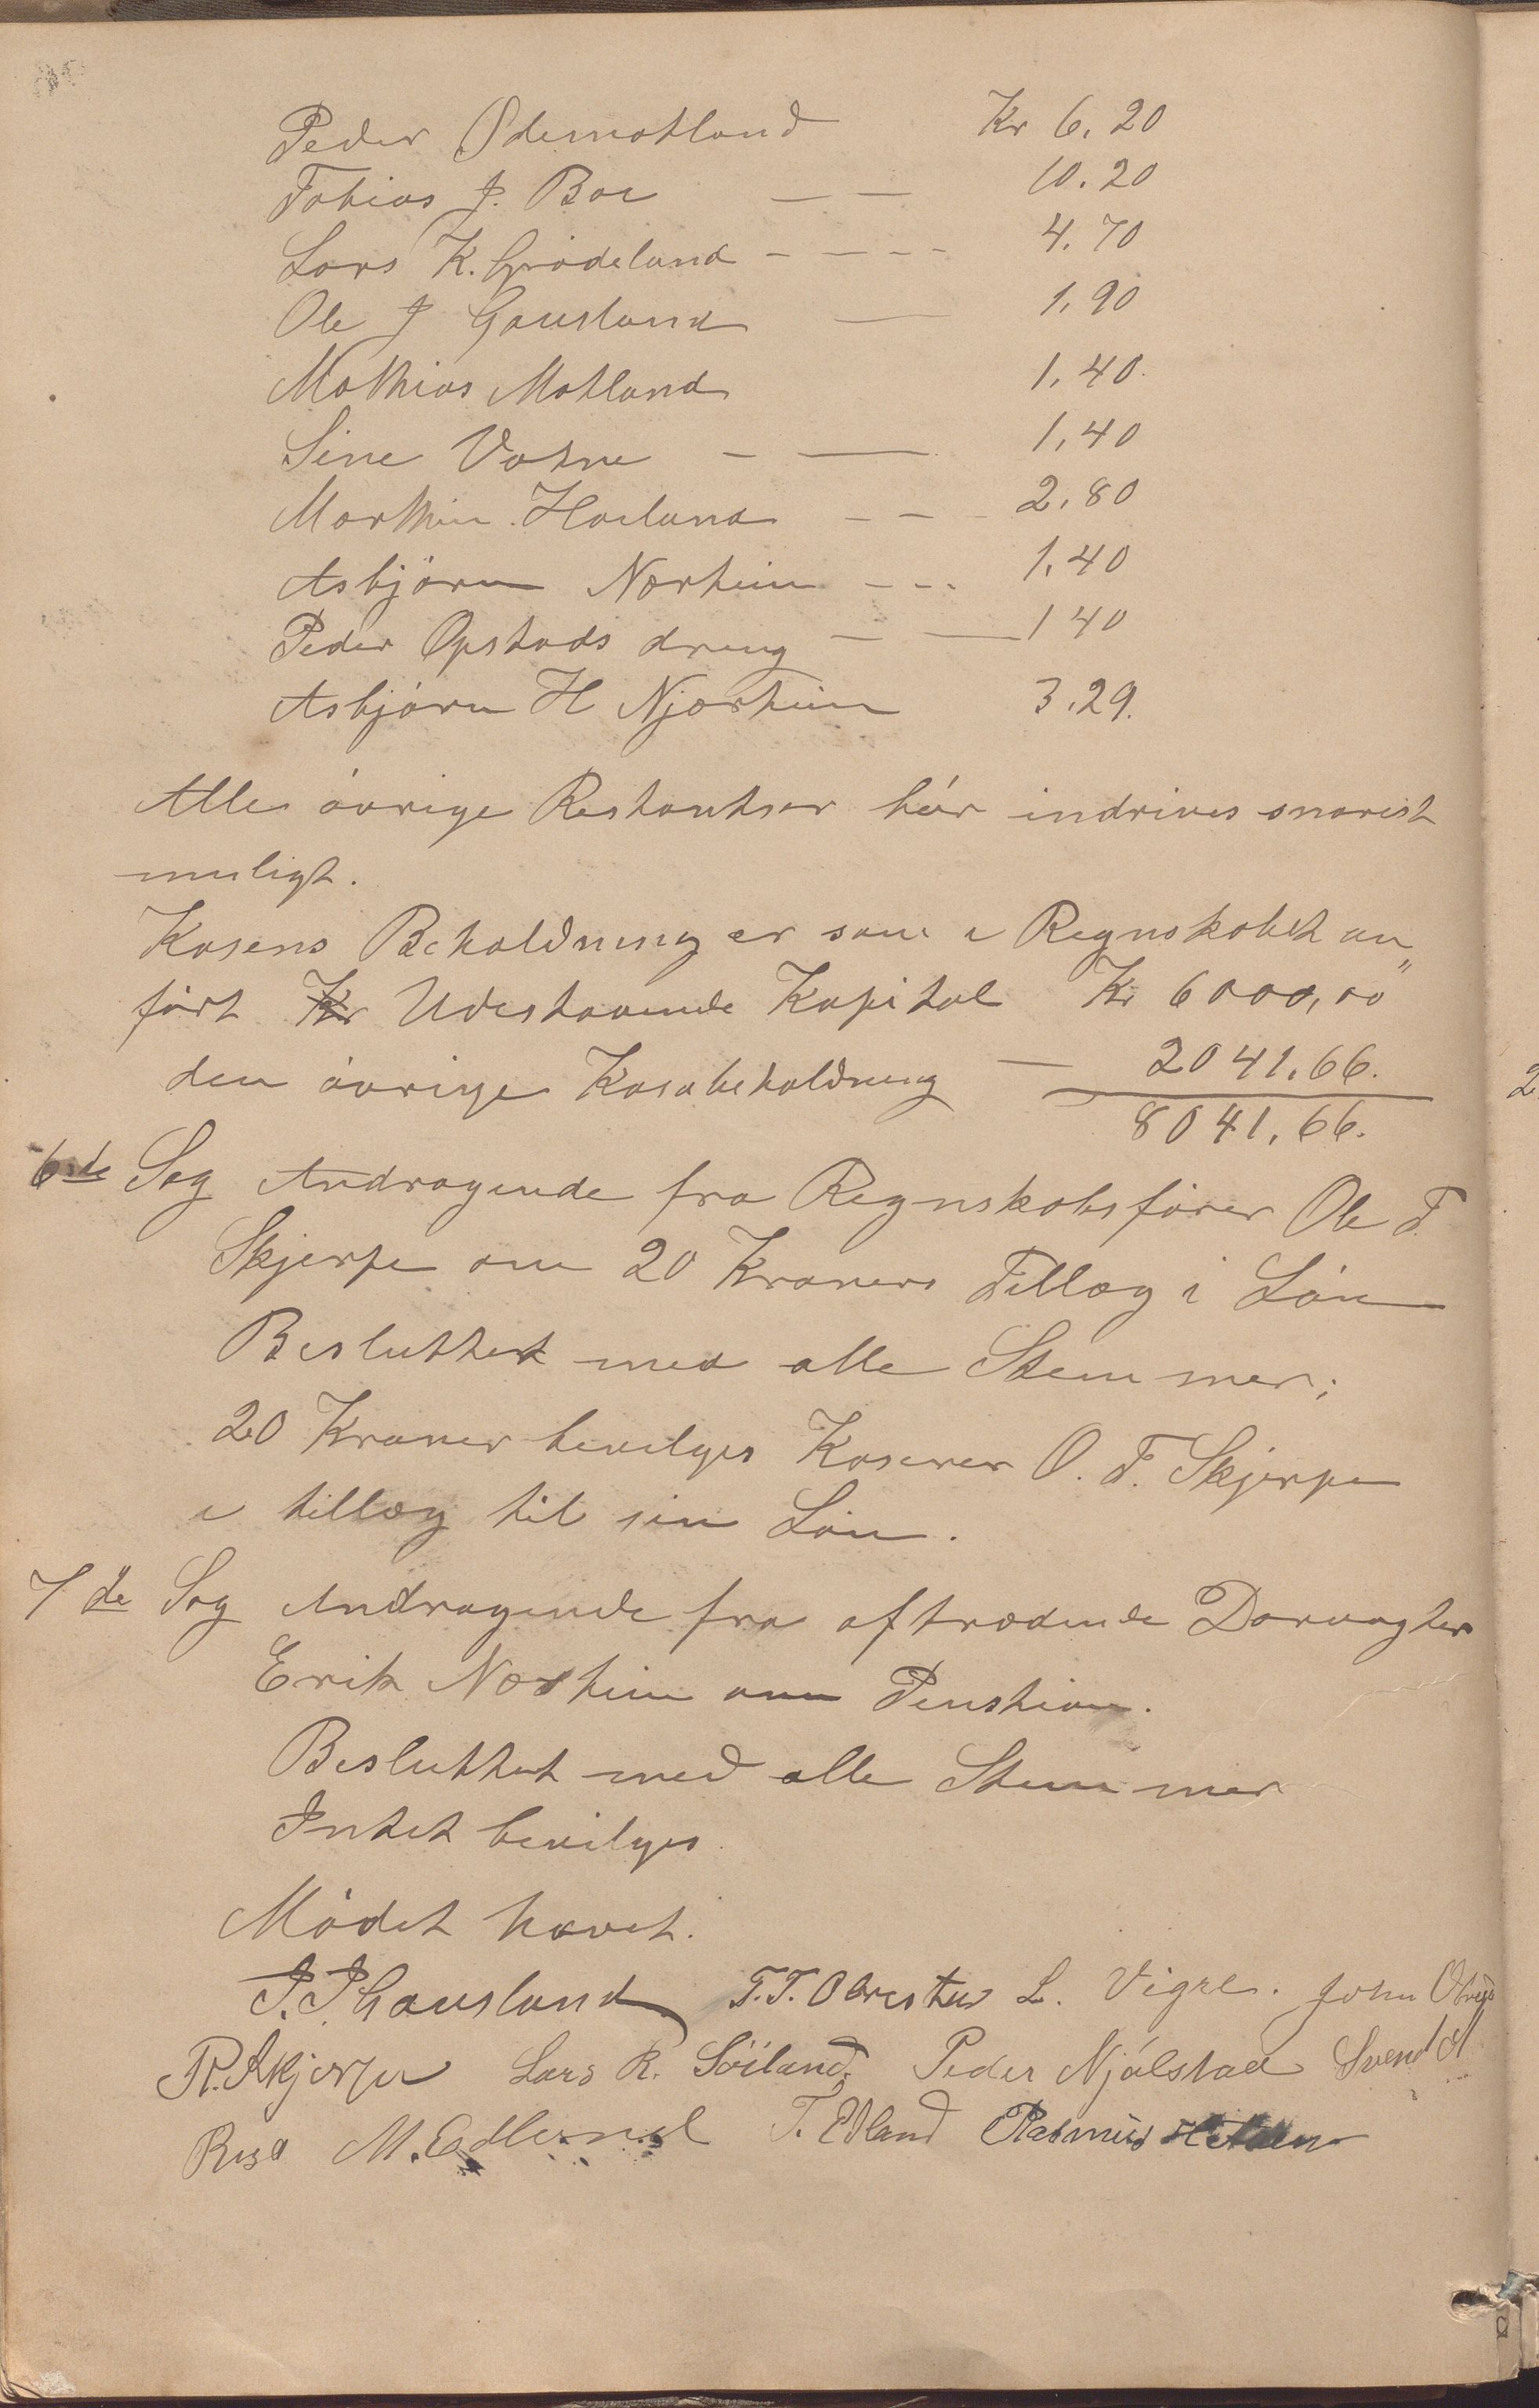 Peder Ødemotland Kr 6.20
Tobias J. Boe — — 10.20
Lars K. Grødeland - - - - 4.70
Ole J Gausland — 1.90
Mathias Motland 1.40.
Sine Vatne - — 1.40
Marthin Haaland - - - 2.80
Asbjørn Nærheim - - - 1.40
Peder Opstads dreng — — 1 40
Asbjørn H Njærheim 3.29.
Alle øvrige Restantser bør indrives snarest
muligt.
Kasens Beholdning er som i Regnskabet an„
ført Kr Udestaaende Kapital Kr 6000,00
den øvrige Kasabeholdning — 2041.66.
8041,66.
6te Sag Andragende fra Regnskabsfører Ole T.
Skjerpe om 20 Kroners Tillæg i Løn
Besluttet med alle Stemmer;
20 Kroner bevilges Kaserer O. T. Skjerpe
i tillæg til sin Løn.
7de Sag Andragende fra aftrædende Dørvogter
Erik Nærheim om Penshion.
Besluttet med alle Stemmer
Intet bevilges.
Mødet hævet.
J. J. Gausland T. T. Obrestad L. Vigre. John
R. Skjerpe Lars R. Söiland. Peder Njålstad Svend
M. Edland T. Edland Rasmus